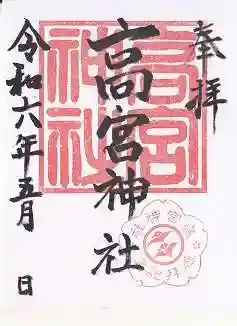 奉拝
高宮神社
高宮神社
令和六年五月 日